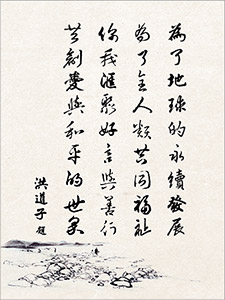 為了地球的永續發展
為了全人類共同福祉
你我匯聚好言與善行
共創愛與和平的世界
洪道子題